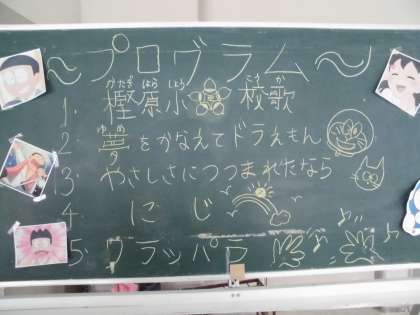 ～プログラム～
かたぎ はら しょう こう か
1. 樫原小 校歌
ゆめ
2 夢をかなえてドラえもん
3. やさしさにつつまれたなら
4. にじ
5. クラッパラ